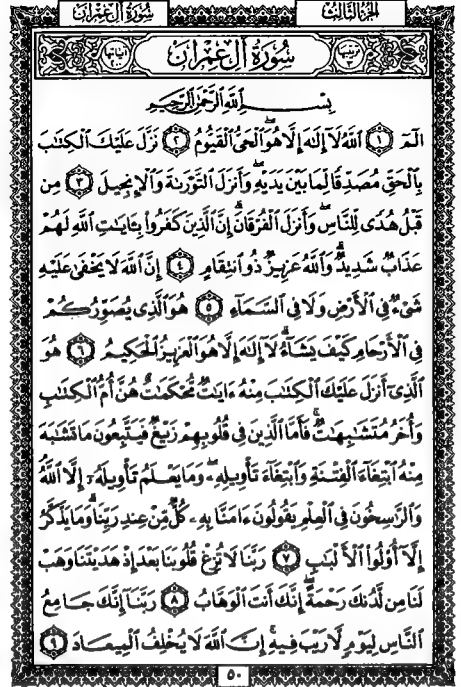 سُورَةُ آلِ عِمْرَان
الجزء الثالث
سُورَةُ آلِ عِمْرَانَ
بِسْمِ ٱللَّهِ ٱلرَّحْمَٰنِ ٱلرَّحِيمِ
الٓمٓ ١ ٱللَّهُ لَآ إِلَٰهَ إِلَّا هُوَ ٱلْحَىُّ ٱلْقَيُّومُ ٢ نَزَّلَ عَلَيْكَ ٱلْكِتَٰبَ
بِٱلْحَقِّ مُصَدِّقًا لِّمَا بَيْنَ يَدَيْهِ وَأَنزَلَ ٱلتَّوْرَىٰةَ وَٱلْإِنجِيلَ ٣ مِن
قَبْلُ هُدًى لِّلنَّاسِ وَأَنزَلَ ٱلْفُرْقَانَ ۗ إِنَّ ٱلَّذِينَ كَفَرُوا۟ بِـَٔايَٰتِ ٱللَّهِ لَهُمْ
عَذَابٌ شَدِيدٌ ۗ وَٱللَّهُ عَزِيزٌ ذُو ٱنتِقَامٍ ٤ إِنَّ ٱللَّهَ لَا يَخْفَىٰ عَلَيْهِ
شَىْءٌ فِى ٱلْأَرْضِ وَلَا فِى ٱلسَّمَآءِ ٥ هُوَ ٱلَّذِى يُصَوِّرُكُمْ
فِى ٱلْأَرْحَامِ كَيْفَ يَشَآءُ ۚ لَآ إِلَٰهَ إِلَّا هُوَ ٱلْعَزِيزُ ٱلْحَكِيمُ ٦ هُوَ
ٱلَّذِىٓ أَنزَلَ عَلَيْكَ ٱلْكِتَٰبَ مِنْهُ ءَايَٰتٌ مُّحْكَمَٰتٌ هُنَّ أُمُّ ٱلْكِتَٰبِ
وَأُخَرُ مُتَشَٰبِهَٰتٌ ۖ فَأَمَّا ٱلَّذِينَ فِى قُلُوبِهِمْ زَيْغٌ فَيَتَّبِعُونَ مَا تَشَٰبَهَ
مِنْهُ ٱبْتِغَآءَ ٱلْفِتْنَةِ وَٱبْتِغَآءَ تَأْوِيلِهِۦ ۗ وَمَا يَعْلَمُ تَأْوِيلَهُۥٓ إِلَّا ٱللَّهُ ۗ
وَٱلرَّٰسِخُونَ فِى ٱلْعِلْمِ يَقُولُونَ ءَامَنَّا بِهِۦ كُلٌّ مِّنْ عِندِ رَبِّنَا ۗ وَمَا يَذَّكَّرُ
إِلَّآ أُو۟لُوا۟ ٱلْأَلْبَٰبِ ٧ رَبَّنَا لَا تُزِغْ قُلُوبَنَا بَعْدَ إِذْ هَدَيْتَنَا وَهَبْ
لَنَا مِن لَّدُنكَ رَحْمَةً ۚ إِنَّكَ أَنتَ ٱلْوَهَّابُ ٨ رَبَّنَآ إِنَّكَ جَامِعُ
ٱلنَّاسِ لِيَوْمٍ لَّا رَيْبَ فِيهِ ۚ إِنَّ ٱللَّهَ لَا يُخْلِفُ ٱلْمِيعَادَ ٩
٥٠